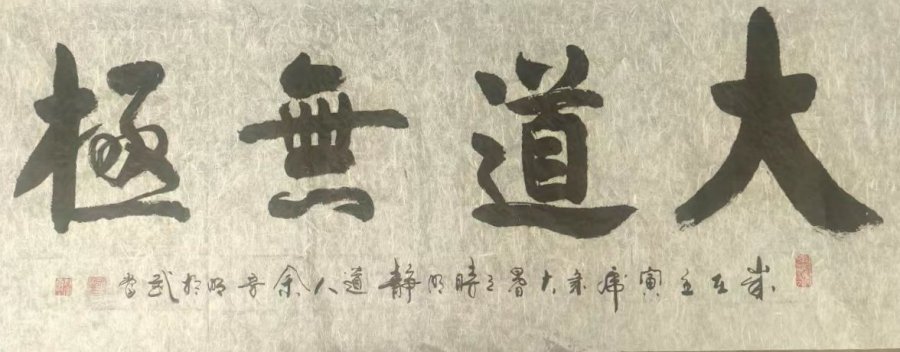 大道無極
歲在壬寅虎年大暑之時明靜道人余音明於武當